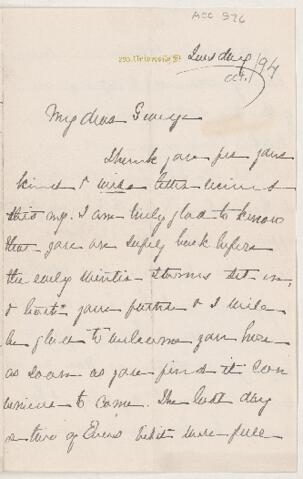 ACC 976
Tuesday
Oct. 1/94
My dear George
Thank you for your
kind & letter
this mg. I am truly glad to know
that you are safely back before
the early winter storms set in,
& both your father & I will
be glad to welcome you here
as soon as you find it con
venient to come. The last day
or two of visit were full